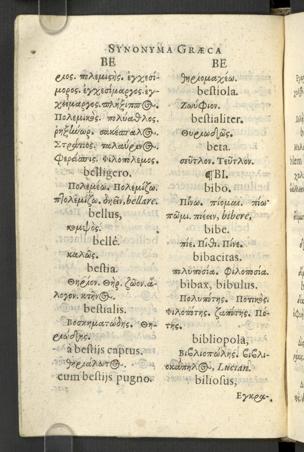 SYNONYMA GRÆCA
BE
πολεμικής. ἐγχεσί-
μορος. ἐγχεσίμαργος. ἐγ-
Πολεμικός. πολύαθλος.
ῥηξήνωρ. σακέσπαλ@.
Στράτιος. ταλαύριν@.
Φερέασπις. Φιλοπόλεμος.
belligero.
Πολεμέω. Πολεμίζω.
πτολεμίζω. δηϊεῖν, bellare.
bellus,
κομψός.
bellè.
καλῶς.
bestia.
Θηρίον. Θήρ. ζῶον. ἄ-
λογον. κτῆν@.
bestialis.
Βοσκηματώδης. Θη-
ριώδης.
à bestijs captus.
θηριάλωτ@.
cum bestijs pugno.
BE
θηριομαχέω.
bestiola.
Ζωΰφιον.
bestialiter.
Θηριωδῶς.
beta.
σεῦτλον. Τεῦτλον.
¶BI.
bibo.
Πίνω. πίομαι. πίω
πῶμι. πιέειν, bibere.
bibe.
πίε. Πῖθι. Πῖνε.
bibacitas.
πολυποσία. Φιλοποσία.
bibax, bibulus.
Πολυπότης. Ποτικός.
Φιλοπότης. ζωπότης. Πό-
της.
bibliopola,
Βιβλιοπώλης. βιβλι-
οκάπηλ@, Lucian.
biliosus,
Εγκρα-